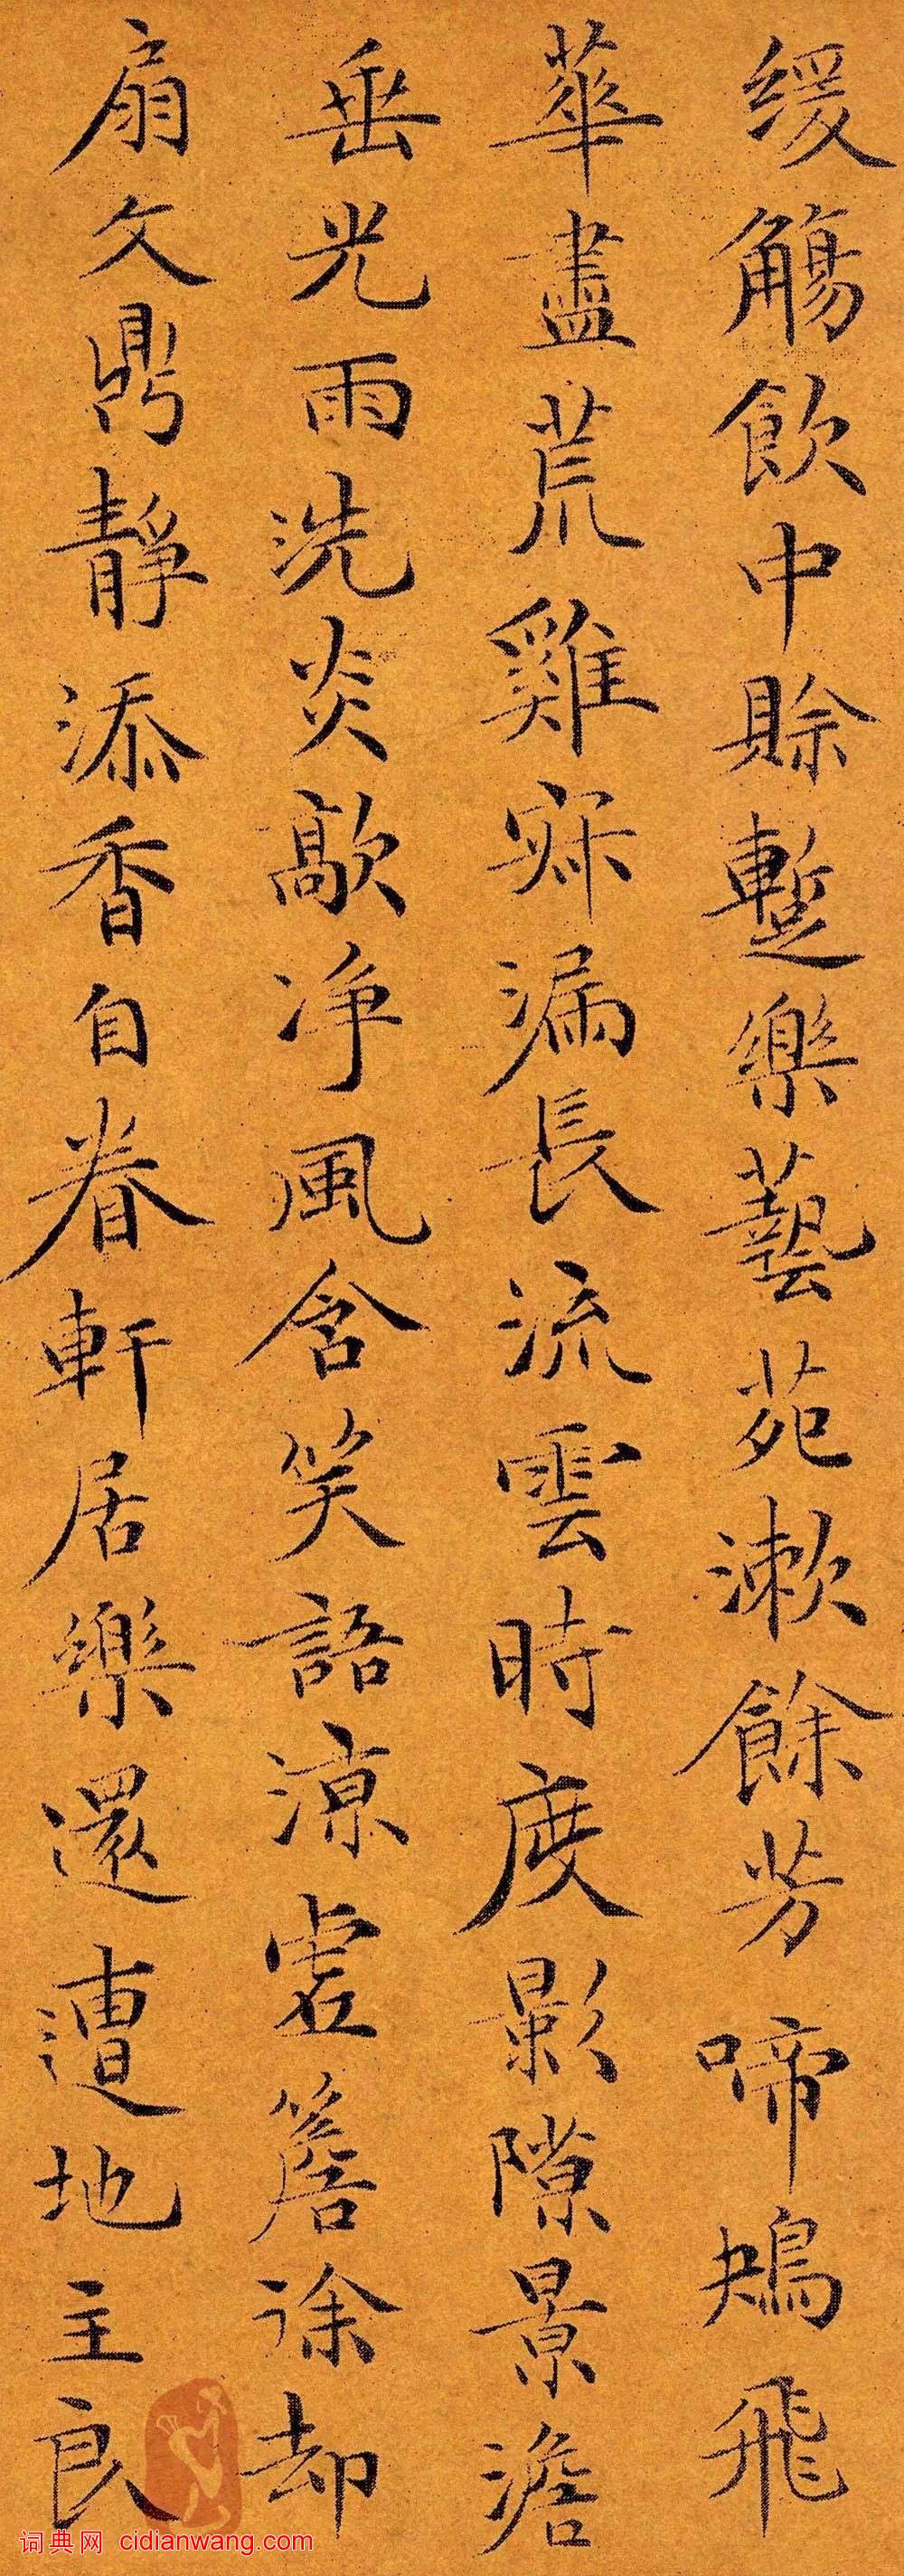 缓觴飲中賒蹔樂藝苑漱餘芳啼鴂飛
華盡荒雞寐漏長流雲時度影隙景澹
垂光雨洗炎歊净風含笑語涼虛簷徐却
扇文鼎靜添香自眷軒居樂還遭地主良
词典网 cidianwang.com